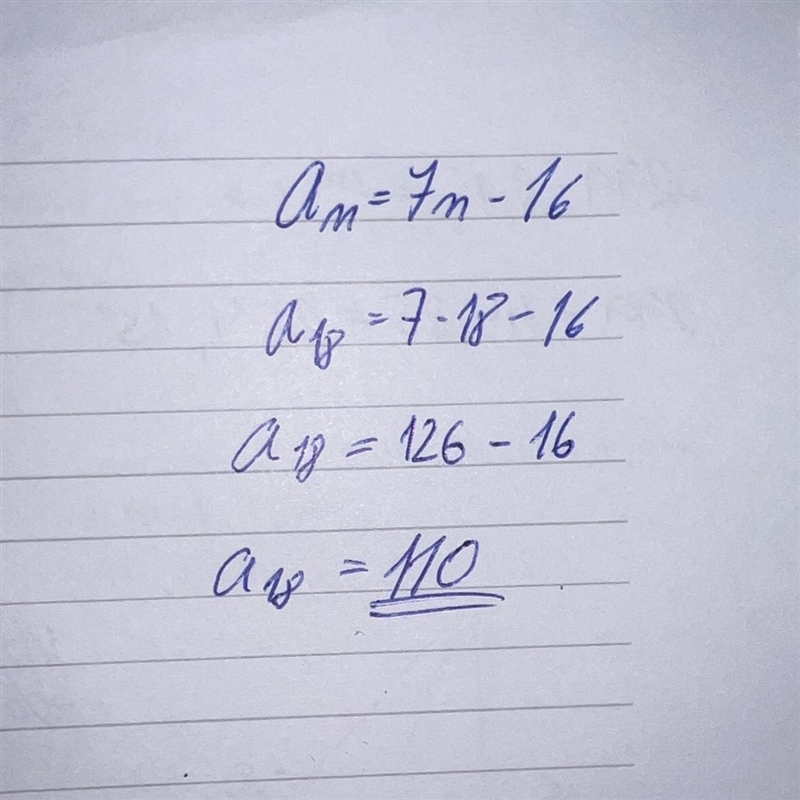 aₙ = 7n - 16
a₁₈ = 7 · 18 - 16
a₁₈ = 126 - 16
a₁₈ = 110